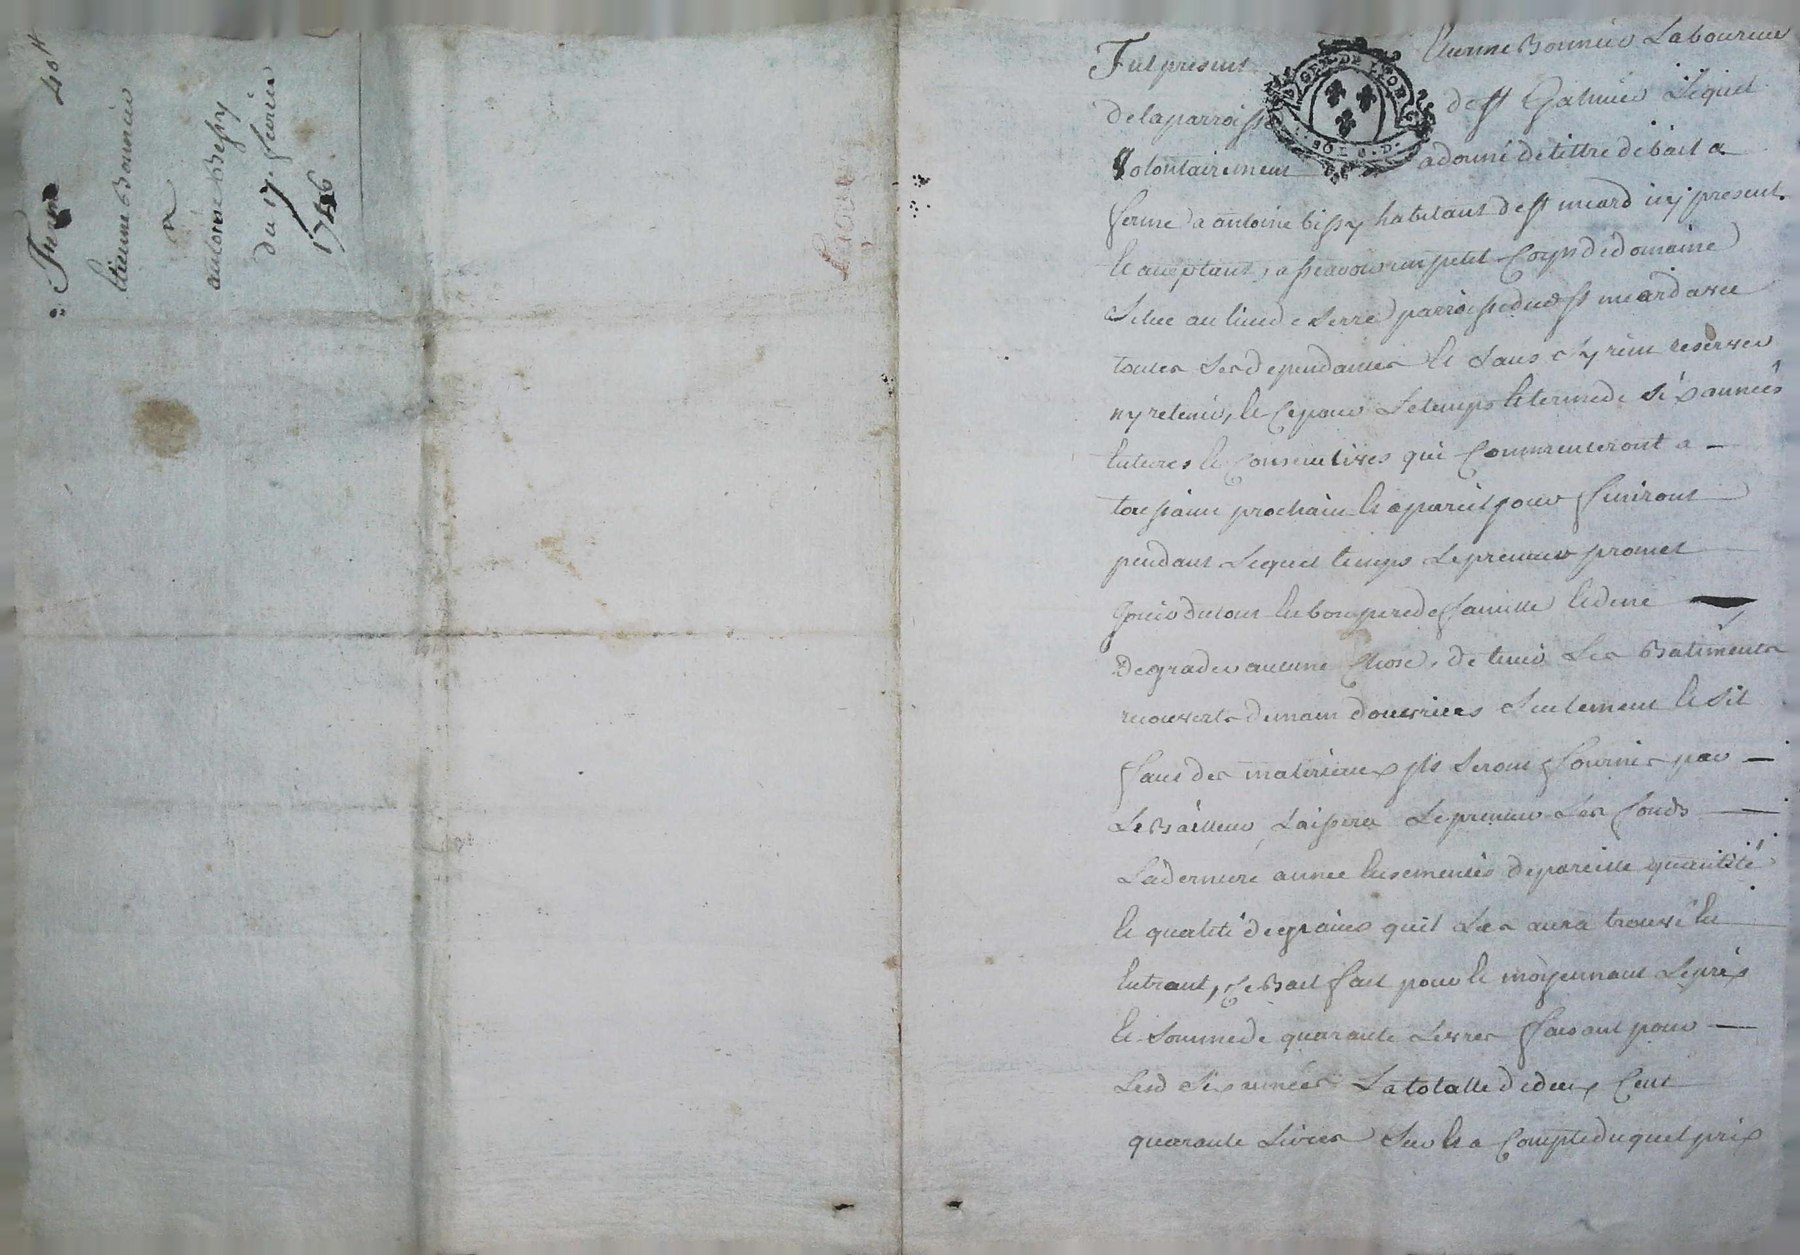 40 ₶
Ferme
Etienne Bonnier
a
antoine Bessy
du 17 fevrier
1746
Fut present Etienne Bonnier Laboureur
GEN. DE LYON
SOL
de la parroisse de st Galmier Lequel
Volontairement a donné de tittre de bail a
ferme a antoine bessy habitant de st meard icy present
et acceptant, a sscavoir un petit Corps de domaine
Situé au lieu de Serre parroisse dud st meard avec
toutes Ses dependances et Sans S'y rien reserver
ny retenir, et Ce pour Le temps et terme de Six années
entieres et Consecutives qui Commenceront a
toussaint prochain et a pareil jour finiront
pendant Lequel temps Le preneur promet
Jouir du tout en bon pere de famille et de ne
degrader aucune Chose, de tenir Les Batiments
recouverts de main d'ouvriers Seulement et S'il
faut des materiaux ils Seront fournis par
Le Bailleur, Laissera Le preneur Les fonds
La derniere année Ensemencés de pareille quantité
et qualité de grains quil Les aura trouvé En
Entrant, Ce Bail fait pour et moyennant Le prix
et Somme de quarante Livres faisant pour
Lesd Six années La totalle de deux Cent
quarante Livres Sur et a Compte duquel prix